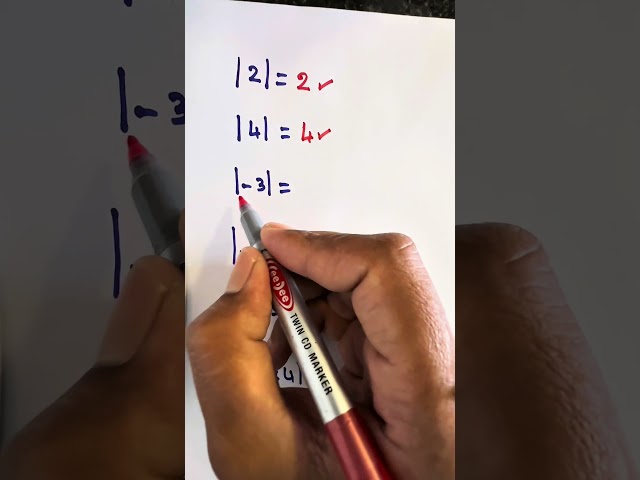 |2| = 2 ✓
|4| = 4 ✓
|-3| =
TWIN CD MARKER
4|